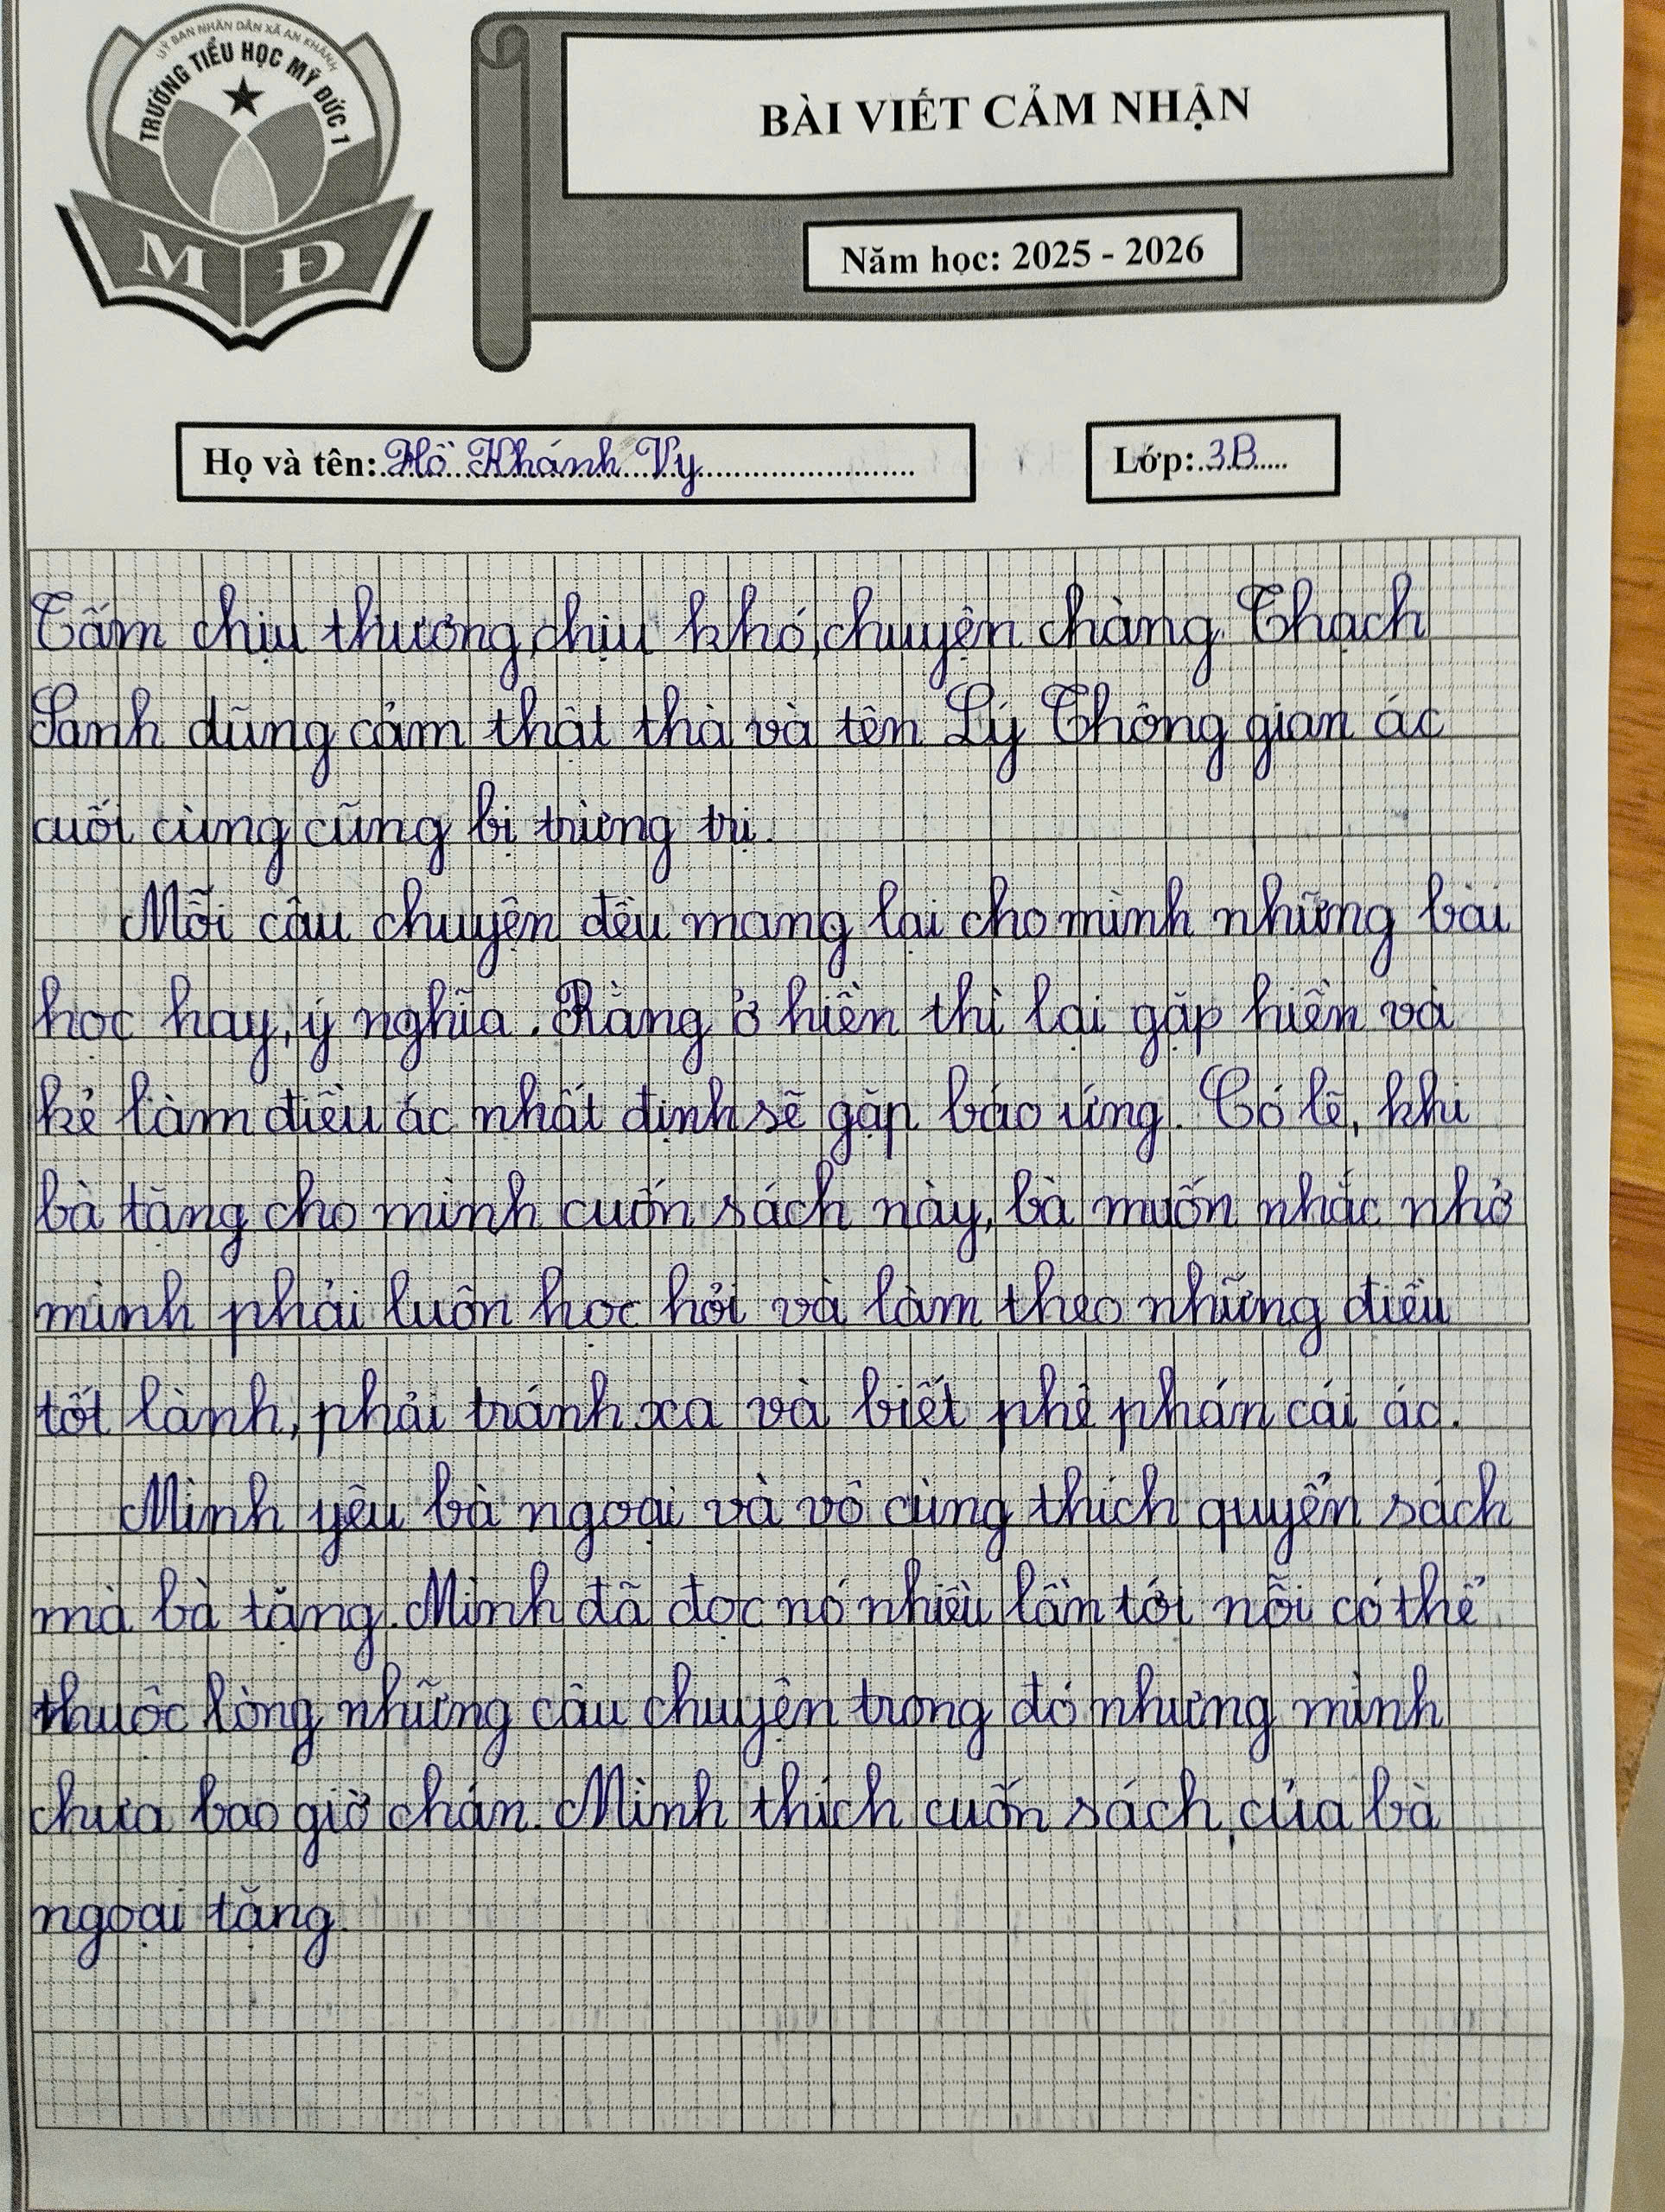 UỶ BAN NHÂN DÂN XÃ AN KHÁNH
TRƯỜNG TIỂU HỌC MỸ ĐỨC 1
M Đ
BÀI VIẾT CẢM NHẬN
Năm học: 2025 - 2026
Họ và tên: Hồ Khánh Vy
Lớp: 3B
Tấm chịu thương, chịu khó, chuyện chàng Thạch
Sanh dũng cảm thật thà và tên Lý Thông gian ác
cuối cùng cũng bị trừng trị.
Mỗi câu chuyện đều mang lại cho mình những bài
học hay, ý nghĩa. Rằng ở hiền thì lại gặp hiền và
kẻ làm điều ác nhất định sẽ gặp báo ứng. Có lẽ, khi
bà tặng cho mình cuốn sách này, bà muốn nhắc nhở
mình phải luôn học hỏi và làm theo những điều
tốt lành, phải tránh xa và biết phê phán cái ác.
Mình yêu bà ngoại và vô cùng thích quyển sách
mà bà tặng. Mình đã đọc nó nhiều lần tới nỗi có thể
thuộc lòng những câu chuyện trong đó nhưng mình
chưa bao giờ chán. Mình thích cuốn sách của bà
ngoại tặng.